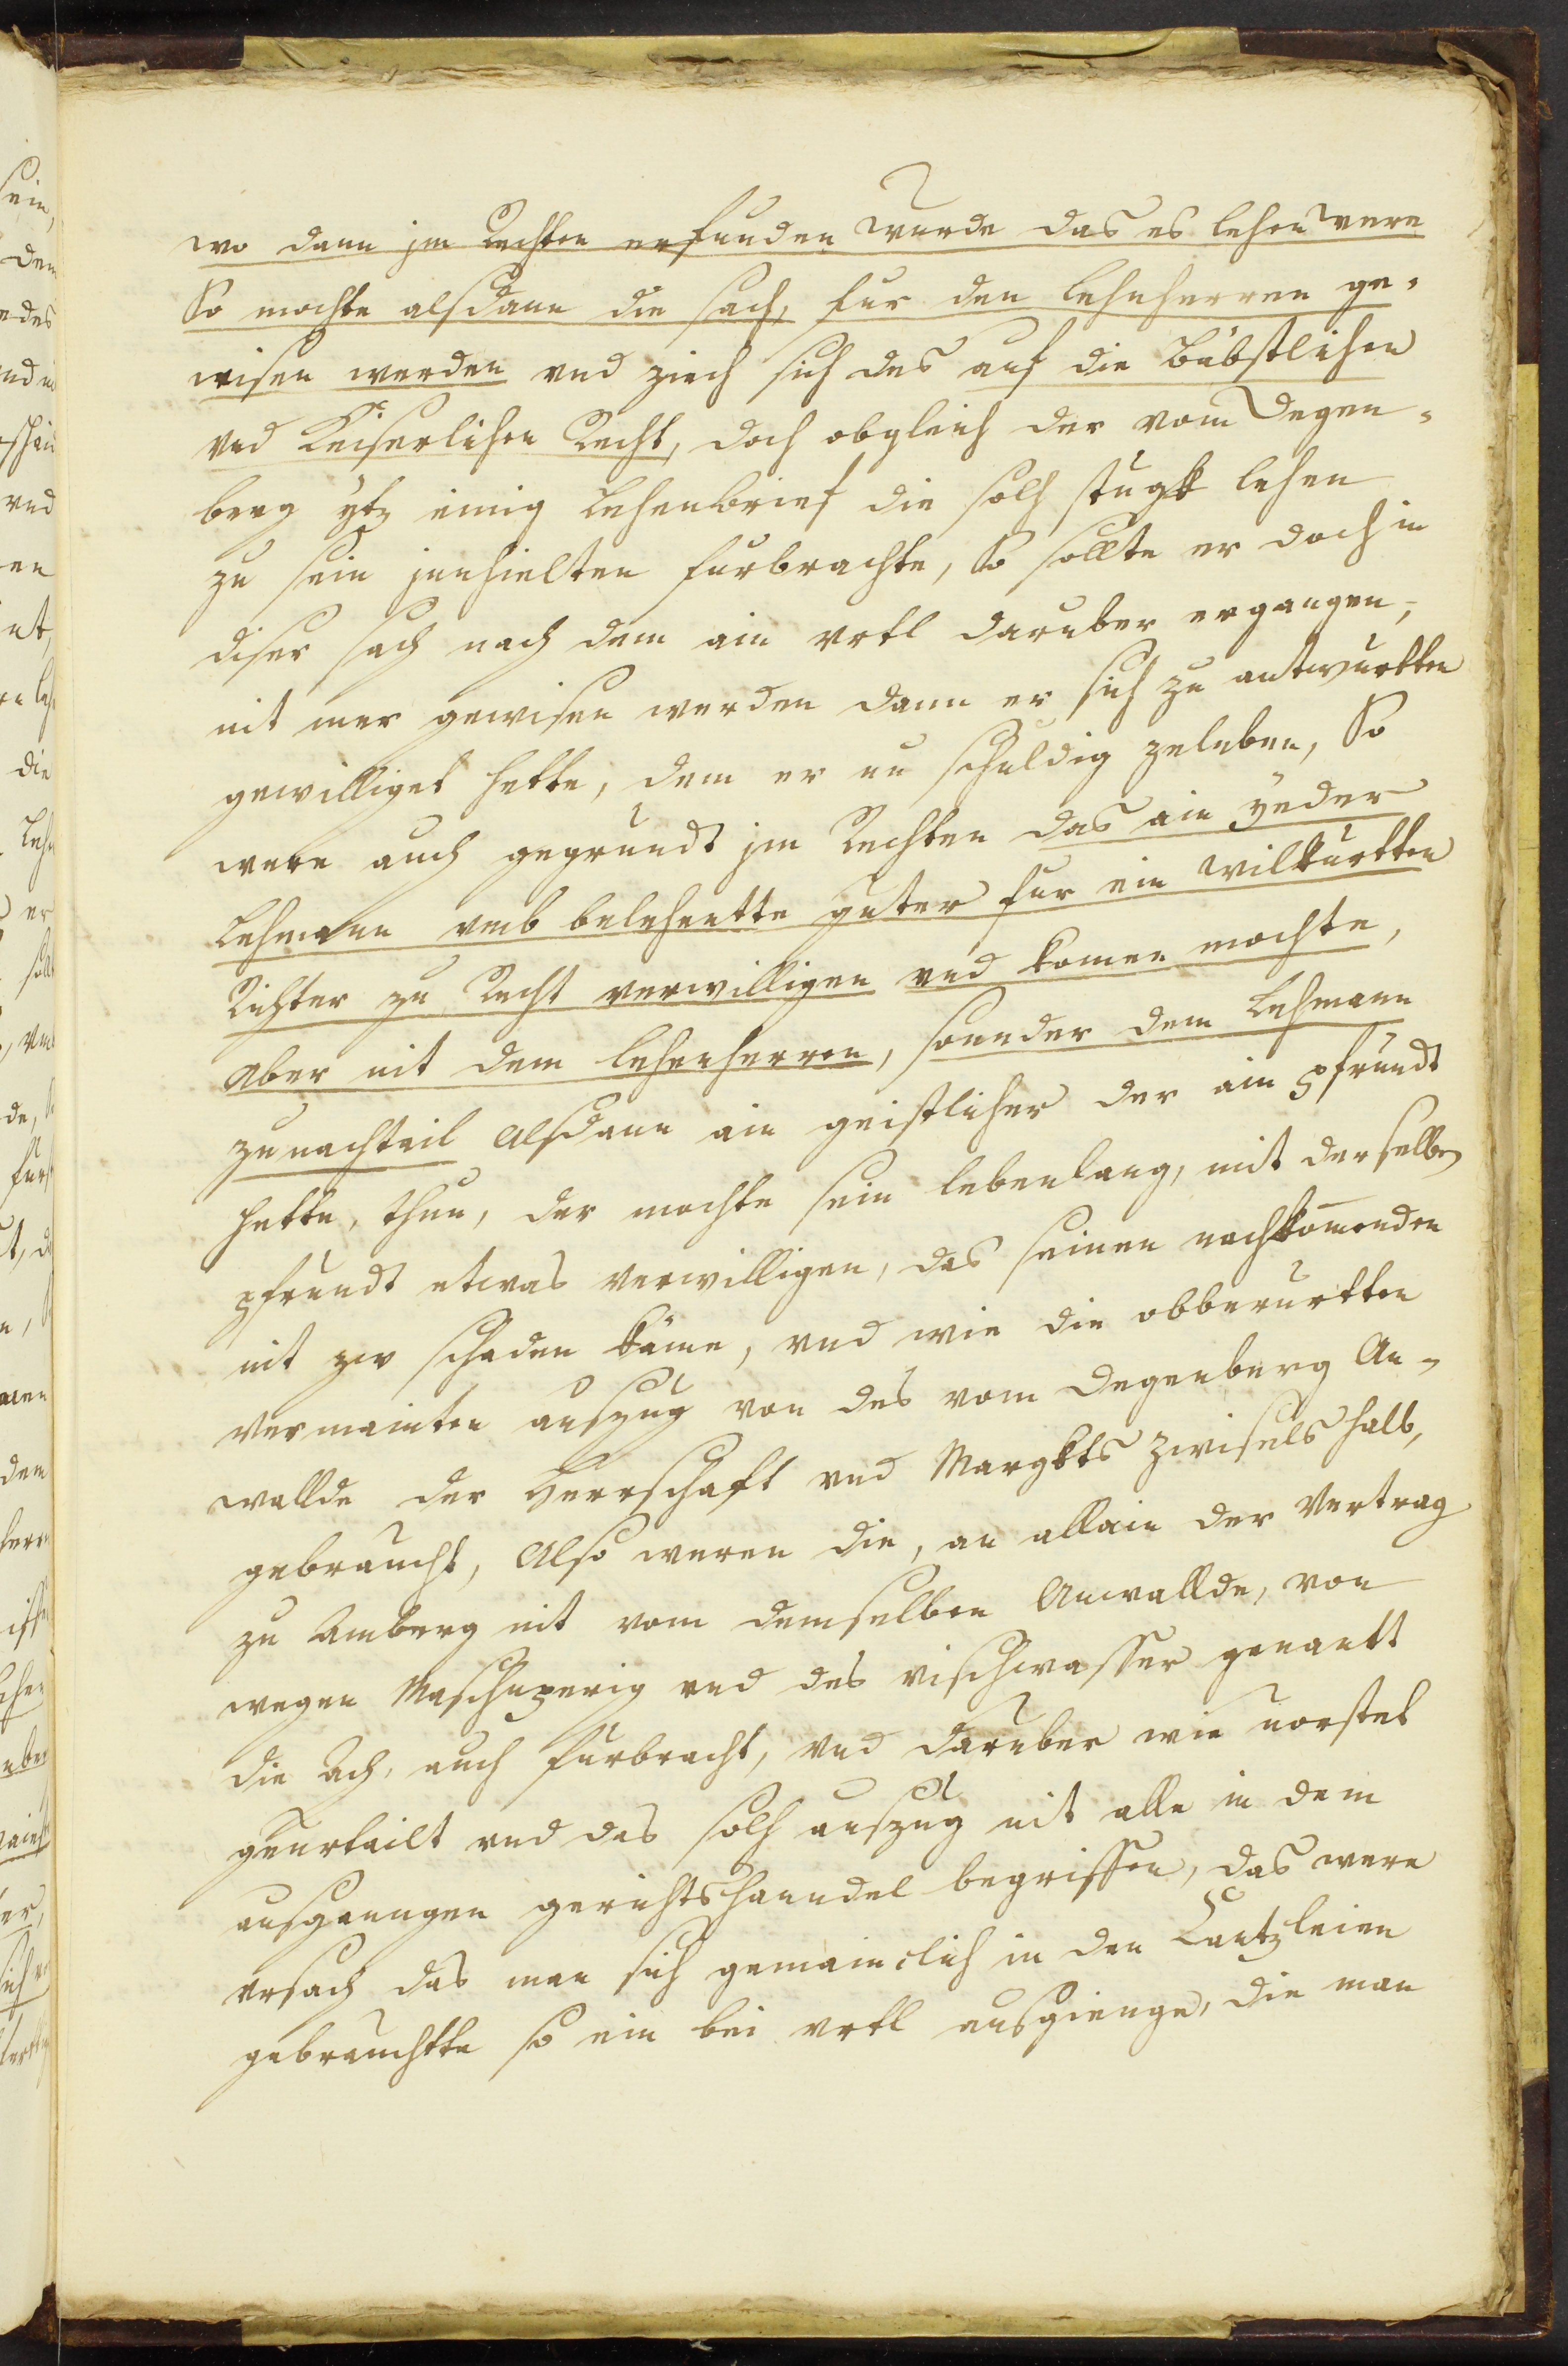 wo dann jm Rechten erfunden wurde das es lehen were
So mochte alsdann die sach, fur den Lehnherren ge-
wisen werden vnd ziech sich des auf die Bäbstlichen
vnd Keiserlichen Recht, doch obgleich der vom Degen-
berg ytz einig Lehenbrief die solh stugk lehen
zu sein jnnhielten furbrachte, So sollte er doch in
diser sach nach dem ain vrtl daruber ergangen,
nit mer gewisen werden dann er sich zu antwurtten
gewilliget hette, dem er nu schuldig zeleben, So
were auch gegrundt jm Rechten das ain yeder
Lehmann vmb belehentte guter fur ein wilkurtten
Richter zu Recht verwilligen vnd komen mochte,
Aber nit dem lehenherren, sonnder dem Lehmann
zu nachteil Alsdann ain geistlicher der ain pfrundt
hette, thun, der mochte sein lebenlang, mit derselben
pfrundt etwas verwilligen, das seinen nachkomenden
nit zw schaden käme, vnd wie die obberurtten
vermainten auszug von des vom Degenberg An-
wallde der Herrschaft vnd Margkts Zwisels halb,
gebraucht, Also weren die, an allain der Vertrag
zu Amberg nit vom demselben Anwallde, von
wegen Maschnperig vnd des vischwasser genantt
die Ach, auch furbracht, vnd daruber wie vorstet
geurtailt vnd das solh auszug nit alle in dem
ausganngen gerichtshanndel begriffen, das were
vrsach das man sich gemainclich in den Cantzleien
gebrauchtte so ein bei vrtl ausgienge, die man